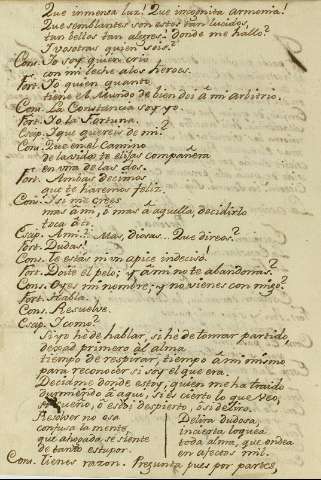 Que inmensa luz! Que incognita armonia!
Que semblantes son estos tan lucidos,
tan bellos tan alegres! donde me hallo?
I vosotras quien sois?
Cons. Io soy quien crio
con mi leche a los heroes.
Fort. Io quien quanto
tiene el Mundo de bien doi à mi arbitrio.
Con. La Constancia soy yo.
Fort. Io la Fortuna.
Csip. I que quereis de mi?
Con. Que en el Camino
de la vida te elijas compañera
en una de las dos.
Fort. Ambas decimos
que te haremos feliz.
Con. I si me crees
mas à mi, ò mas à aquella, decidirlo
toca à ti.
Csip. A mi? Mas, diosas.. Que direos?
Fort. Dudas!
Cons. Te estás ni un apice indeciso!
Fort. Doite el pelo; y à mi no te abandonas?
Cons. Oyes mi nombre; y no vienes con migo?
Fort. Habla.
Cons. Resuelve.
Csip. I como?
Si yo he de hablar, si hè de tomar partido,
dexad primero al alma
tiempo de respirar, tiempo à mi mismo
para reconocer si soy el que era.
Deciame donde estoy, quien me ha traido
durmiendo à aqui, si es cierto lo que veo,
si sueño, ò estoi despierto, ò si deliro.
Resolver no osa
confusa la mente,
que ahogada se siente
de tanto estupor.
Delira dudosa,
incierta loquéa
toda alma, que ondea
en afectos mil.
Cons. tienes razon. Pregunta pues por partes,